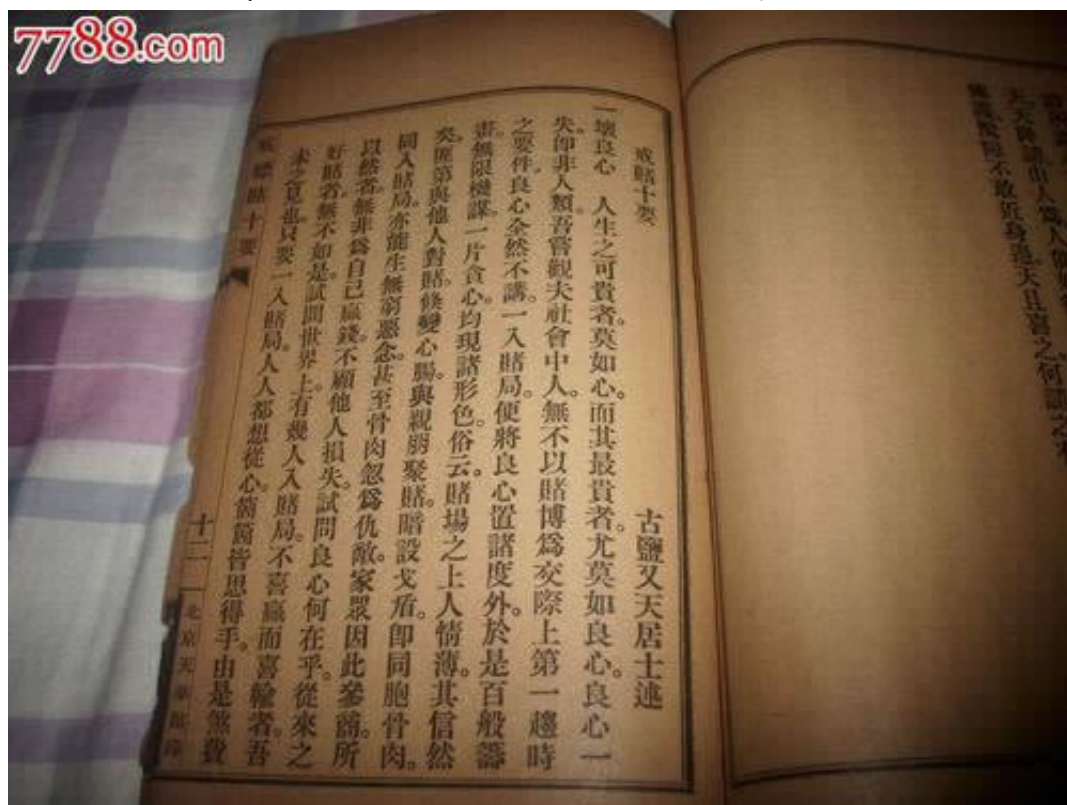 7788.com
天天降諸由人爲人
不敢近身過天且喜之何
戒賭十要
古鹽又天居士述
一壞良心 人生之可貴者。莫如心。而其最貴者。尤莫如良心。良心一
失。卽非人類。吾嘗觀夫社會中人。無不以賭博爲交際上第一趨時
之要件。良心全然不講。一入賭局。便將良心置諸度外。於是百般籌
畫。無限機謀。一片貪心。均現諸形色。俗云。賭場之上人情薄。其信然
矣。匪第與他人對賭。倏變心腸。與親朋聚賭。暗設戈盾。卽同胞骨肉。
同入賭局。亦能生無窮惡念。甚至骨肉忽爲仇敵。家眾因此參商。所
以然者。無非爲自己贏錢。不顧他人損失。試問良心何在乎。從來之
好賭者。無不如是。試問世界上。有幾人入賭局。不喜贏而喜輸者。吾
未之見也。只要一入賭局。人人都想從心。箇箇皆思得手。由是煞費
賭十要
十二
北京天華館